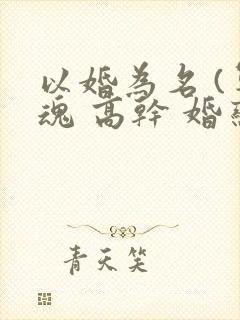 以婚為名(
魂 高幹 婚
青天笑